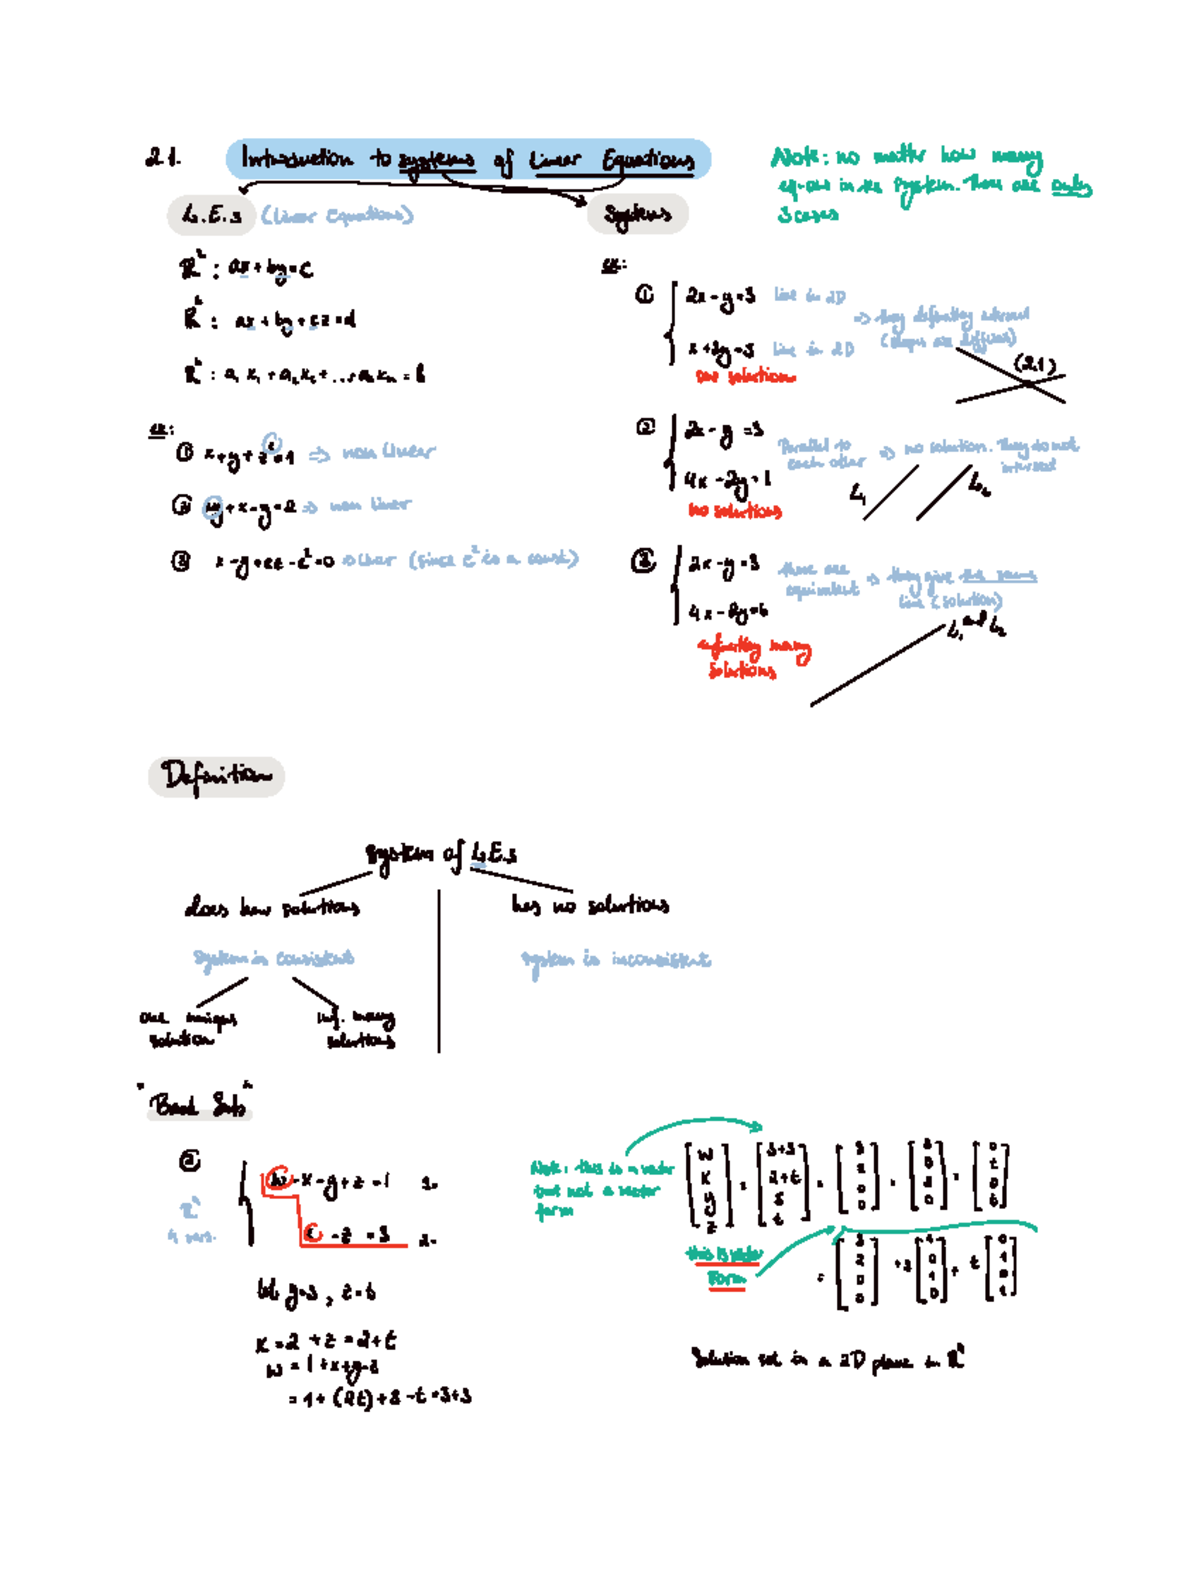 2.1. Introduction to systems of Linear Equations
Note: no matter how many
in the system. There are only
3 cases
L.E.s (Linear Equations)
Systems
R² : ax + by = c
R : ax + by + cz = d
R : a₁x₁ + a₂x₂ + ... +
ex:
① x + y + z = 1 ⇒ non linear
② xy + x - y = 2 ⇒ non linear
③ (since e² is a const)
ex:
① 2x - y = 3 line in 2D
x + 3y = 5 line in 2D
⇒ they definitely intersect
(slopes are different)
one solution
(2,1)
② 2x - y = 3
4x - 2y = 1
Parallel to
each other
⇒ no solution. They do not
intersect
no solutions
L₁ L₂
③ 2x - y = 3
4x - 2y = 6
these are
equivalent
⇒ they give the same
line (solution)
infinitely many
solutions
L₁ and L₂
Definition
System of L.E.s
does have solutions
has no solutions
system is consistent
system is inconsistent
one unique
solution
inf. many
solutions
"Back Sub"
②
R⁴
4 vars.
w - x - y + z = 1 1.
- z = 3 2.
let
x = 2 + z = 2 + t
w = 1 + x + y - z
Note: this is a vector
but not a vector
form
w
x
y
z
2+t
s
t
this is vector
form
Solution set is a 2D plane in R⁴